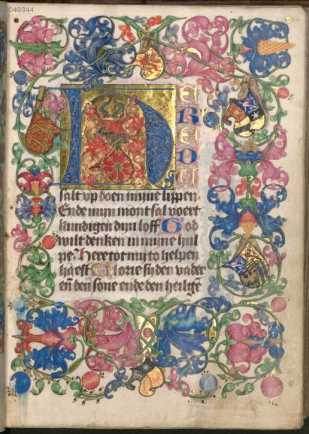 H
E
R
E
salt vp doen mijne lippen.
Ende mijn mont sal voert
kundigen dijn loff God
wilt denken in mijne hul
pe Here tot mij te helpen
haest Glorie si den vader
en den sone ende den heilgē